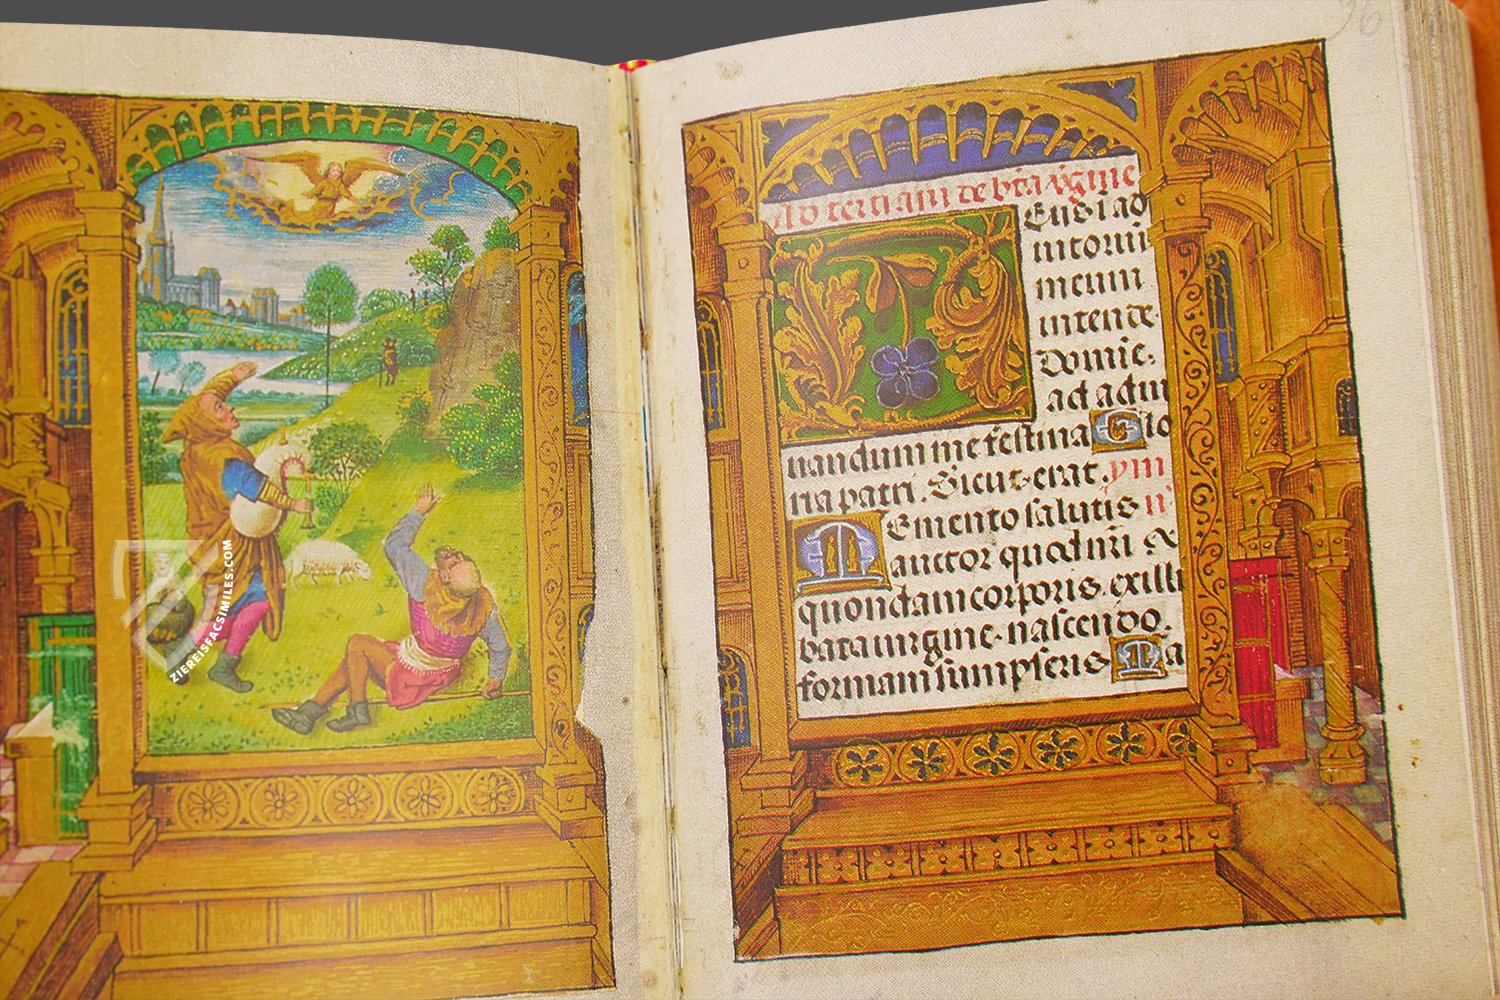 ZIEREISFACSIMILES.COM
96
Ad tertiam de bta v̄gine
Eus i ad
iutoriū
meum
intende.
Domīe.
ad adiu
uandum me festina Glo
ria patri. Sicut erat. ymn
Memento salutis n⁹
auctor quod nr̄i &
quondam corporis. ex illi
bata uirgine. nascendo.
formam sumpseris Ma